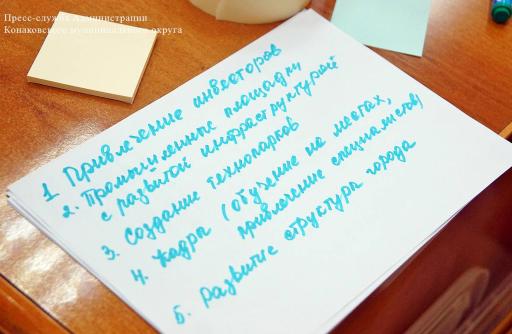 Пресс-служба Администрации
Конаковского муниципального округа
1. Привлечение инвесторов
2. Промышленные площадки
с развитой инфраструктурой
3. Создание технопарков
4. Кадры (обучение на местах,
привлечение специалистов)
5. Развитие структуры города